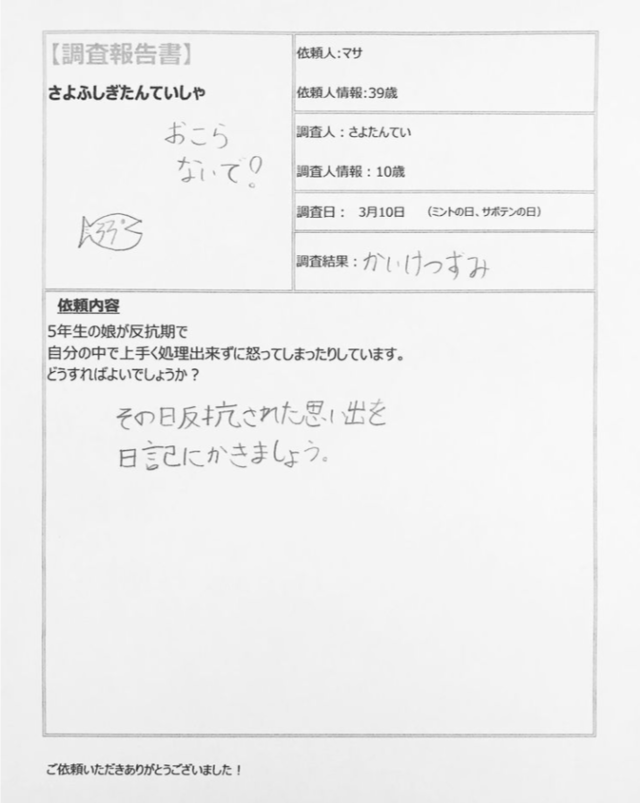 【調査報告書】
さよふしぎたんていしゃ
おこら
ないで!
依頼人:マサ
依頼人情報:39歳
調査人：さよたんてい
調査人情報：10歳
調査日： 3月10日 （ミントの日、サボテンの日）
調査結果：かいけつずみ
依頼内容
5年生の娘が反抗期で
自分の中で上手く処理出来ずに怒ってしまったりしています。
どうすればよいでしょうか？
その日反抗された思い出を
日記にかきましょう。
ご依頼いただきありがとうございました！